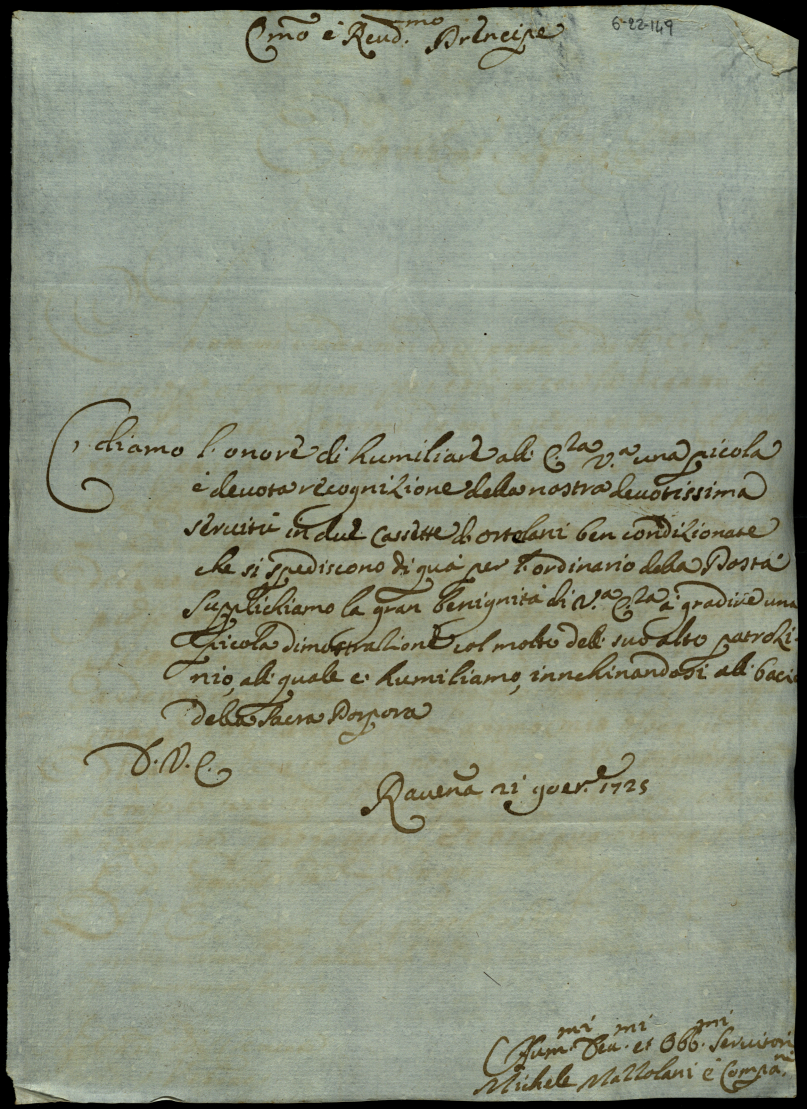 6-22-149
Emo è Reud.mo Principe
Ci diamo l'onore di humiliare all' E.za V.a una picola
è deuota recognizione della nostra deuotissima
seruitù in due Cassette di ortolani ben condizionate
che si spediscono di quà per l'ordinario della Posta
Supplichiamo la gran benignità di V.a E.za à gradire una
picola dimostrazione col molto dell' suo alto patrozi-
nio, all' quale ci humiliamo, innchinandosi all' bacio
della Sacra Porpora
D. V. E.
Rauena 21 9ber.e 1725
Hum.mi Deu.mi et Obb.mi Seruitori
Michele Mazzolani è Compa.ni